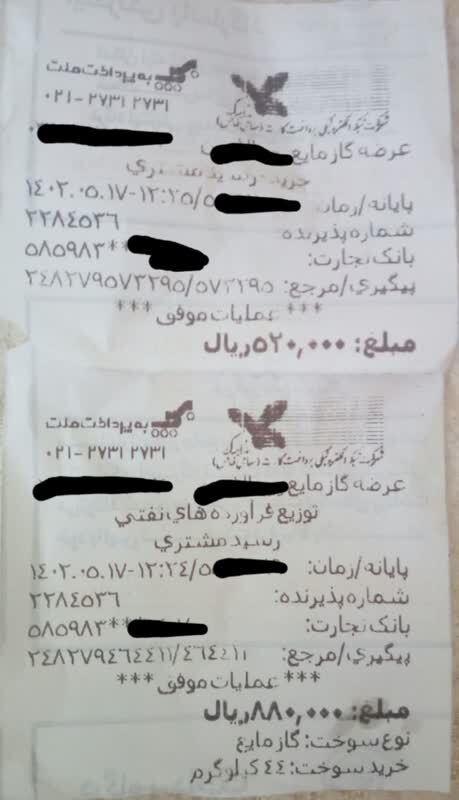 به پرداخت ملت
۰۲۱-۲۷۳۱ ۲۷۳۱
عرضه گاز مایع
خرید رسید مشتری
پایانه/زمان: ۱۴۰۲.۰۵.۱۷-۱۲:۲۵/۵
شماره پذیرنده ۲۲۸۴۵۳۶
بانک تجارت: ۵۸۵۹۸۳**
پیگیری/مرجع: ۲۴۸۲۷۹۵۷۳۲۹۵/۵۷۳۲۹۵
*** عملیات موفق ***
مبلغ: ۵۲۰,۰۰۰ریال
به پرداخت ملت
۰۲۱-۲۷۳۱ ۲۷۳۱
عرضه گاز مایع
توزیع فرآورده های نفتي
رسید مشتری
پایانه/زمان: ۱۴۰۲.۰۵.۱۷-۱۲:۲۴/۵
شماره پذیرنده: ۲۲۸۴۵۳۶
بانک تجارت: ۵۸۵۹۸۳**
پیگیری/مرجع: ۲۴۸۲۷۹۴۶۴۴۱۱/۴۶۴۴۱۱
*** عملیات موفق ***
مبلغ: ۸۸۰,۰۰۰ریال
نوع سوخت: گاز مایع
خرید سوخت: ۴۴ کیلوگرم